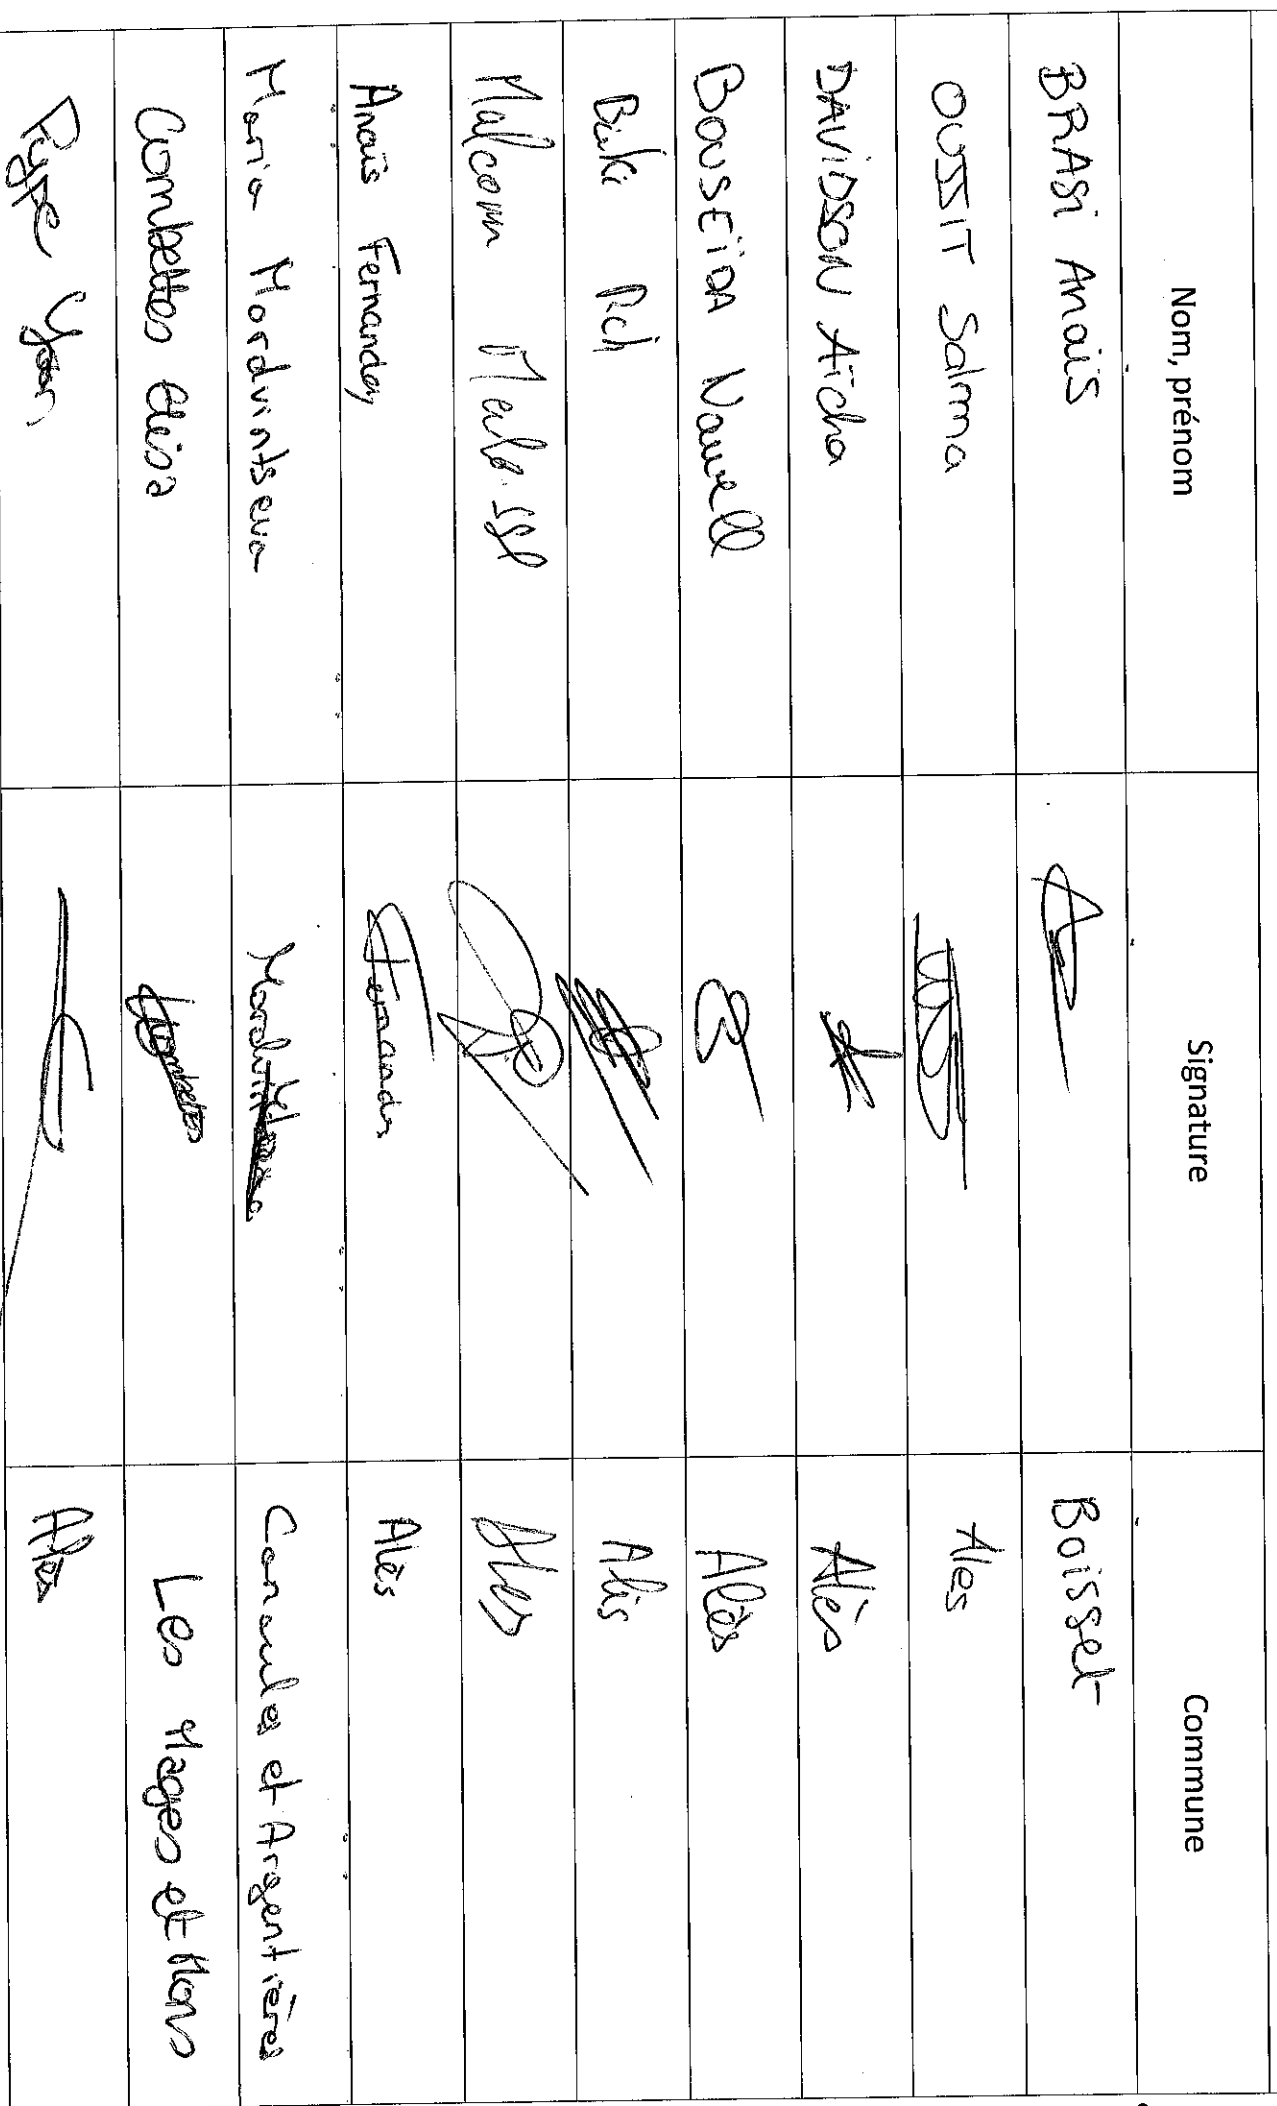 Nom, prénom Signature Commune
BRASi Anaïs Boisset
OUSSIT Salma Ales
DAViDSON Aïcha Alès
BOUSEïDA Nawell Alès
Rch Alès
Malcom Malasse Ales
Anaïs Fernandez Fernandez Alès
Maria Mordvintseva Cannaules et Argentières
Combettes Elisa Combettes Les Mages et Mons
Pype Yoan Alès